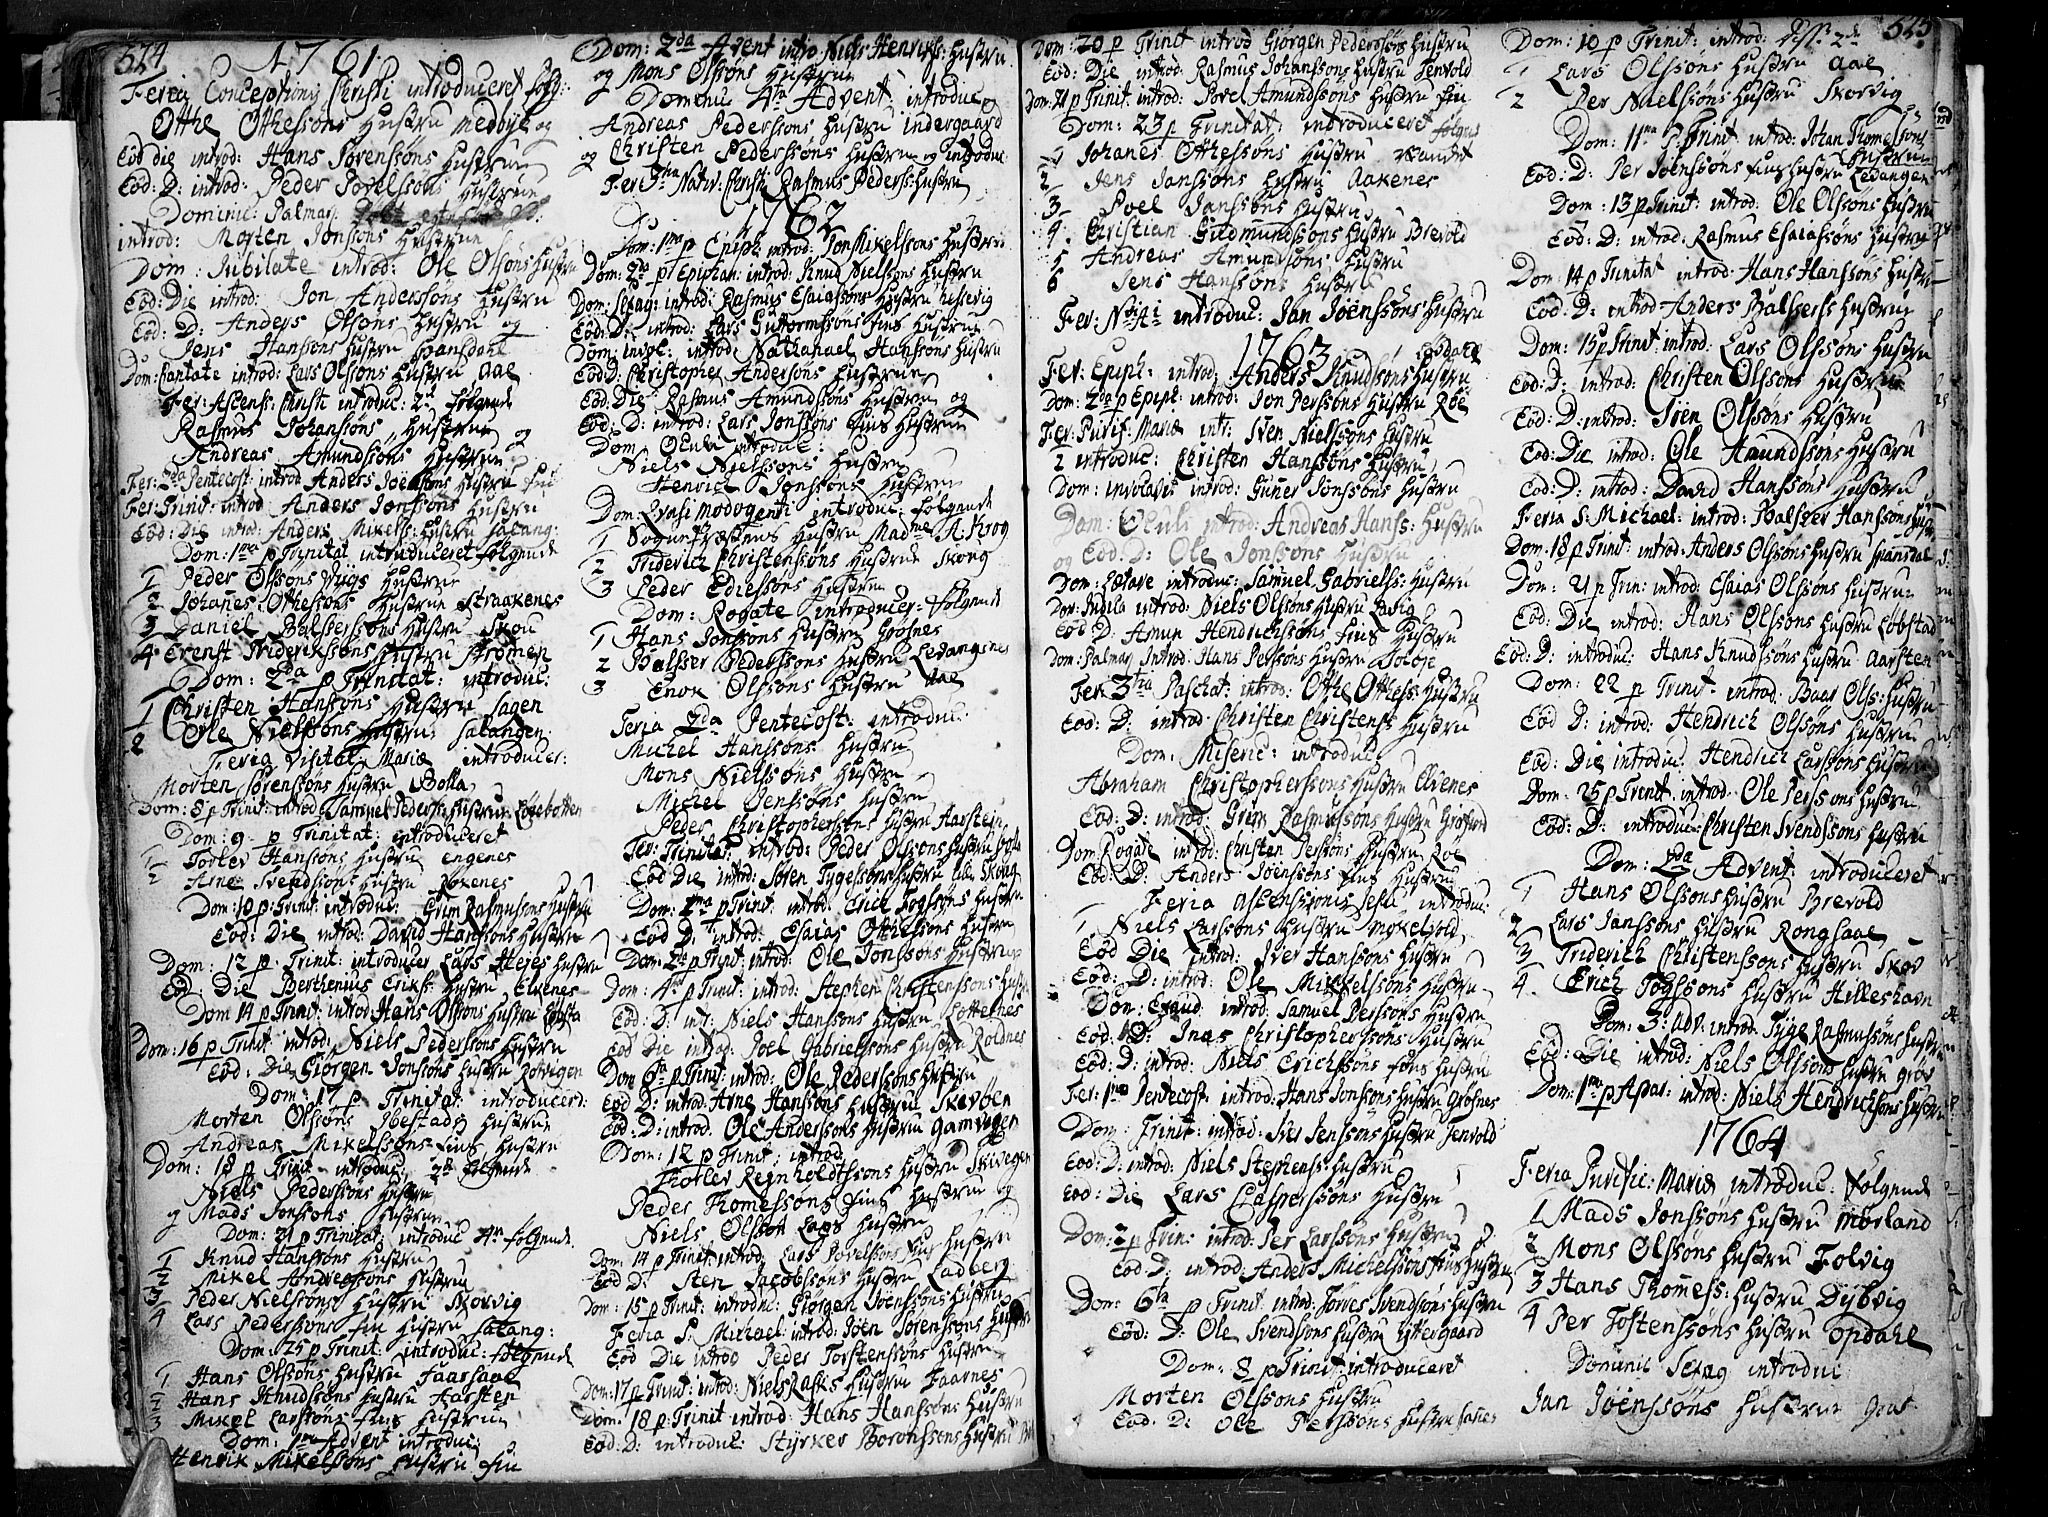 524
1761
Feria Conceptionis Christi introduceret følg:
Otthe Othessøns Hustru Nedbye og
Eod Die introd: Hans Sørenssøns Hustrue
Eod: D: introd: Peder Povelssøns Hustrue
Dominic: Palmar:
introd: Morten Jonssøns Hustrue
Dom: Jubilate introd: Ole Olsøns Hustru
Eod: Die introd: Jon Anderssøns Hustru
Eod: D: Anders Olsøns Hustru og
Jens Hanssøns Hustru Spansdahl
Dom: Cantate introd: Lars Olssøns Hustru Aae
Fer: Ascens: Christi introduc: 2de følgende
Rasmus Johanssøns Hustrue og
Andreas Amundssøns Hustrue
Fer: 2da Pentecost: introd Anders Joenssøns Hustru Fin
Fer: Trinit: introd Anders Jonssøns Hustru
Eod: Die introd: Anders Mikels: Hustru Salang:
Dom: 1ma p Trinitat introduceret følgende
1 Peder Olssøns Viigs Hustrue
2 Johanes Othessøns Hustrue Straakenes
3 Daniel Balssersøns Hustru Skou
4 Ernst Friderikssøns Hustru Strømen
Dom: 2da p Trinitat: introduc:
1 Christen Hansøns Hustrue Sagen
2 Ole Nielssøns Hustrue Salangen
Feria Visitat: Mariæ introducer:
Morten Sørenssøns Hustru Bolla
Dom: 8 p Trinit: introd: Samuel Peders: Hustrue
Dom: 9 p Trinitat: introduceret
1 Torlev Hanssøns Hustru Engenes
2 Arne Svendssøns Hustru Røkenes
Dom: 10 p: Trinit: introduc: Grim Rasmussøns Hustru
Eod: Die introd: David Hanssøns Hustru
Dom: 12 p Trinit: introducer Lars Hejes Hustru
Eod: Die Berthenius Eriks: Hustru Elvenes
Dom 14 p Trinit: introd: Hans Olssøns Hustru
Dom: 16 p Trinit: introd: Niels Pederssøns Hustru
Eod: Die Giørgen Jonssøns Hustru Rotvigen
Dom: 17 p Trinitat: introducerd:
Morten Olssøns Ibestads Hustrue
Andreas Mikelssøns Fins Hustru
Dom: 18 p Trinit introduc: 2de følgende
Niels Pederssøns Hustru
og Mads Jonssøns Hustrue
Dom: 21 p Trinitat: introduc 4re følgende
1 Knud Hanssøns Hustru
2 Mikel Andreassøns Hustru
3 Peder Nielssøns Hustru Skorvig
4 Lars Pederssøns Fin Hustru Salang:
Dom: 25 p Trinit: introduc: følgende
1 Hans Olssøns Hustru Faarsaae
2 Hans Knudssøns Hustru Aarsten
3 Mikel Larssøns Fins Hustrue
Dom: 1ma Advent introduc:
Henrik Mikelssøns Hustru Fin
Dom: 2da Advent introd Niels Henrikss: Hustrue
og Mons Olssøns Hustrue
Dominic 4ta Advent introduc
Andreas Pederssøns Hustru Indergaard
og Christen Pederssøns Hustrue og introduc
Fer 3tia Nativ: Christi Rasmus Peders: Hustru
1762
Dom: 1ma p Epiph: introd: Jon Mikelssøns Hustru
Dom: 2da p Epiphan: introd: Knud Nielssøns Hustru
Dom: Septuag: introd: Rasmus Esaiassøns Hustru
Eod: D: introd: Lars Guttormssøns Fins Hustrue
Dom: Invoc: introd Nathanael Hanssøns Hustru
Eod: D: Christopher Andersøns Hustrue
Eod: Die: Rasmus Amundssøns Hustrue og
Eod: D: introd: Lars Jonssøns Fins Hustrue
Dom: Oculi introduc:
Niels Nielssøns Hustru
Henrich Jonssøns Hustrue
Dom: Qvasimodogenti introduc: følgende
1 Sogne Præstens Hustru Madme A: Krog
2 Friderich Christenssøns Hustrue Skoug
3 Peder Ediessøns Hustrue
Dom: Rogate introducer: følgende
1 Hans Jonssøns Hustru Grøsnes
2 Balsser Pederssøns Hustru Ledangsnes
3 Enok Olssøns Hustru Aae
Feria 2da Pentecost: introduc:
Michel Hanssøns Hustru
Mons Nielssøns Hustru
Michel Jenssøns Hustru
Peder Christopherssøns Hustru Aarstein
Fer: Trinitat: introd: Peder Olssøns Hustru
Eod Die introd: Søren Tygessøns Hustru
Dom: 1ma p Trinit: introd: Erich Togssøns Hustru
Eod D: introd: Esaias Otthessøns Hustru
Dom: 2da p Trinit: introd: Ole Jonssøns Hustrue
Dom: 4ta p Trinit: introd: Stephen Christenssøns Hustru
Eod: D: int: Niels Hanssøns Hustru
Eod Die introd: Joel Gabrielssøns Hustru Roldnes
Dom 6ta p Trinit: introd: Ole Pederssøns Hustru
Eod D: introd: Arne Hanssøns Hustru Skevøen
Eod: D: introd: Ole Anderssøns Hustru Gamvigen
Dom: 12 p Trinit: introd:
Torlev Reinholdtssøns Hustru
Peder Thomessøns Fins Hustrue og
Niels Olssøn Laps Hustru
Dom: 14 p Trinit: introd: Lars Povelssøns Fins Hustru
Eod D: Sten Jacobssøns Hustru Ladberg
Dom: 15 p Trinit: introduc: Giørgen Joenssøns Hustru
Feria S: Michael: introd: Joen Sørenssøns Hustru
Eod Die introd Peder Torstenssøns Hustru
Dom: 17 p Trinit: introd: Niels Rasks Hustru Faarnes
Dom: 18 p: Trinit introd: Hans Hanssøns Hustru
Eod: D: introduc: Styrker Boronssøns Hustru
Dom: 20 p Trinit introd Giørgen Pederssøns Hustru
Eod: Die introd: Rasmus Johanssøns Hustru Tenvold
Dom: 21 p Trinit: introd: Povel Amundssøns Hustru Fin
Dom: 23 p Trinitat: introduceret følgend
1 Johanes Othessøns Hustru
2 Jens Janssøns Hustru Aakenes
3 Poel Janssøns Hustru
4 Christian Gudmundssøns Hustru Brevold
5 Andreas Amundsøns Hustru
6 Jens Hanssøns Hustru
Fer: Novi Ai introduc: Jan Joenssøns Hustru
1763
Fer: Epiph: introd: Anders Knudssøns Hustru
Dom: 2da p Epiph: introd: Jon Perssøns Hustru Roe
Fer: Purif: Mariæ intr: Sven Nielssøns Hustru
2 introduc: Christen Hanssøns Hustru
Dom: Invocavit introd: Guner Jonssøns Hustru
Dom: Oculi introd: Andreas Hanss: Hustru
og Eod: D: Ole Jonssøns Hustru
Dom: Lætare introduc: Samuel Gabrielss: Hustru
Dom: Judica introd: Niels Olssøns Hustru Lavig
Eod D: Amun Hendrichssøns Fins Hustru
Dom: Palmar Introd: Hans Perssøns Hustru
Fer: 3tia Paschat: introd: Otthe Otthess: Hustru
Eod: D: introd: Christen Christenss Hustru
Dom: Miseric: introduc:
Abraham Christopherssøns Hustru Elvenes
Eod: D: introd: Grim Rasmussøns Hustru
Dom: Rogate introd: Christen Perssøns Hustru Roe
Eod: D: Anders Joenssøns Fins Hustru
Feria Ascensionis Jesu introduc:
1 Niels Larssøns Hustru
Eod Die introd: Iver Hanssøns Hustru
Eod: D: introd: Ole Mikkelssøns Hustru
Dom: Exaud: introd: Samuel Perssøns Hustru
Eod: D: Inas Christopherssøns Hustru
Eod: D: introd: Niels Erichssøns Fins Hustru
Fer: 1ma Pentecost: introd: Hans Jonssøns Hustru Grøsnes
Dom: Trinit: introd: Iver Jenssøns Hustru Tenvold
Eod: D: introd: Niels Stephenss: Hustru
Eod: Die Lars Casperssøns Hustru
Dom: 2 p Trin: introd: Per Larssøns Hustru
Eod: D: introd: Anders Michelssøns Fins Hustru
Dom: 6ta p Trinit: introd: Torres Svendsøns Hustru
Eod: D: Ole Svendsøns Hustru Yttergaard
Dom: 8 p Trinit: introduceret
Morten Olssøns Hustru
Eod: D: Ole Perssøns Hustru
525
Dom: 10 p Trinit: introd: disse 2de
1 Lars Olssøns Hustru Aae
2 Per Nielssøns Hustru Skorvig
Dom: 11ma p: Trinit introd: Johan Thomessøns
Hustrue
Eod: D: Per Joenssøns Fins Hustru Ledangen
Dom: 13 p Trinit: introd: Ole Olssøns Hustru
Eod: D: introd: Rasmus Esaiassøns Hustru
Dom 14 p Trinitat introd: Hans Hanssøns Hustru
Eod: D: introd Anders Balsserss Hustrue
Dom: 15 p Trinit: introd: Lars Olssøns Hustru
Eod: D: introd: Christen Olssøns Hustrue
Eod: D: introd: Iven Olssøns Hustru
Eod: Die introd: Ole Amundssøns Hustru
Eod: D: introd: David Hanssøns Hustru
Feria S: Michael: introd: Balsser Hanssøns Hustru
Dom: 18 p Trinit: introd: Anders Olssøns Hustru Spansdal
Dom: 21 p Trin: introd: Esaias Olssøns Hustrue
Eod: Die introd: Hans Olssøns Hustru Løbstad
Eod: D: introduc: Hans Knudssøns Hustru Aarsten
Dom: 22 p Trinit: introd: Baar Olss: Hustru
Eod D: introd: Hendrich Olssøns Hustru
Eod: Die introduc: Hendrich Larssøns Hustru
Dom: 25 p Trinit: introd: Ole Perssøns Hustru
Eod: D: introduc: Christen Svendssøns Hustru
Dom: 2da Advent: introduceret
1 Hans Olssøns Hustru Brevold
2 Lars Janssøns Hustru Rongsaae
3 Friderich Christenssøns Hustru Skov
4 Erich Togssøns Hustru Hilleshavn
Dom: 3: Adv: introd: Tyge Rasmussøns Hustru
Eod: Die introd: Niels Olssøns Hustru
Dom: 1ma p introd: Niels Hendrichsøns Hustru
1764
Feria Purific: Mariæ introduc: følgende
1 Mads Jonssøns Hustru Mørland
2 Mons Olssøns Hustru Folvig
3 Hans Thomess: Hustru Dybvig
4 Per Tostenssøns Hustru Opdahl
Dominic Septuag introduc
Jan Joenssøns Hustrue